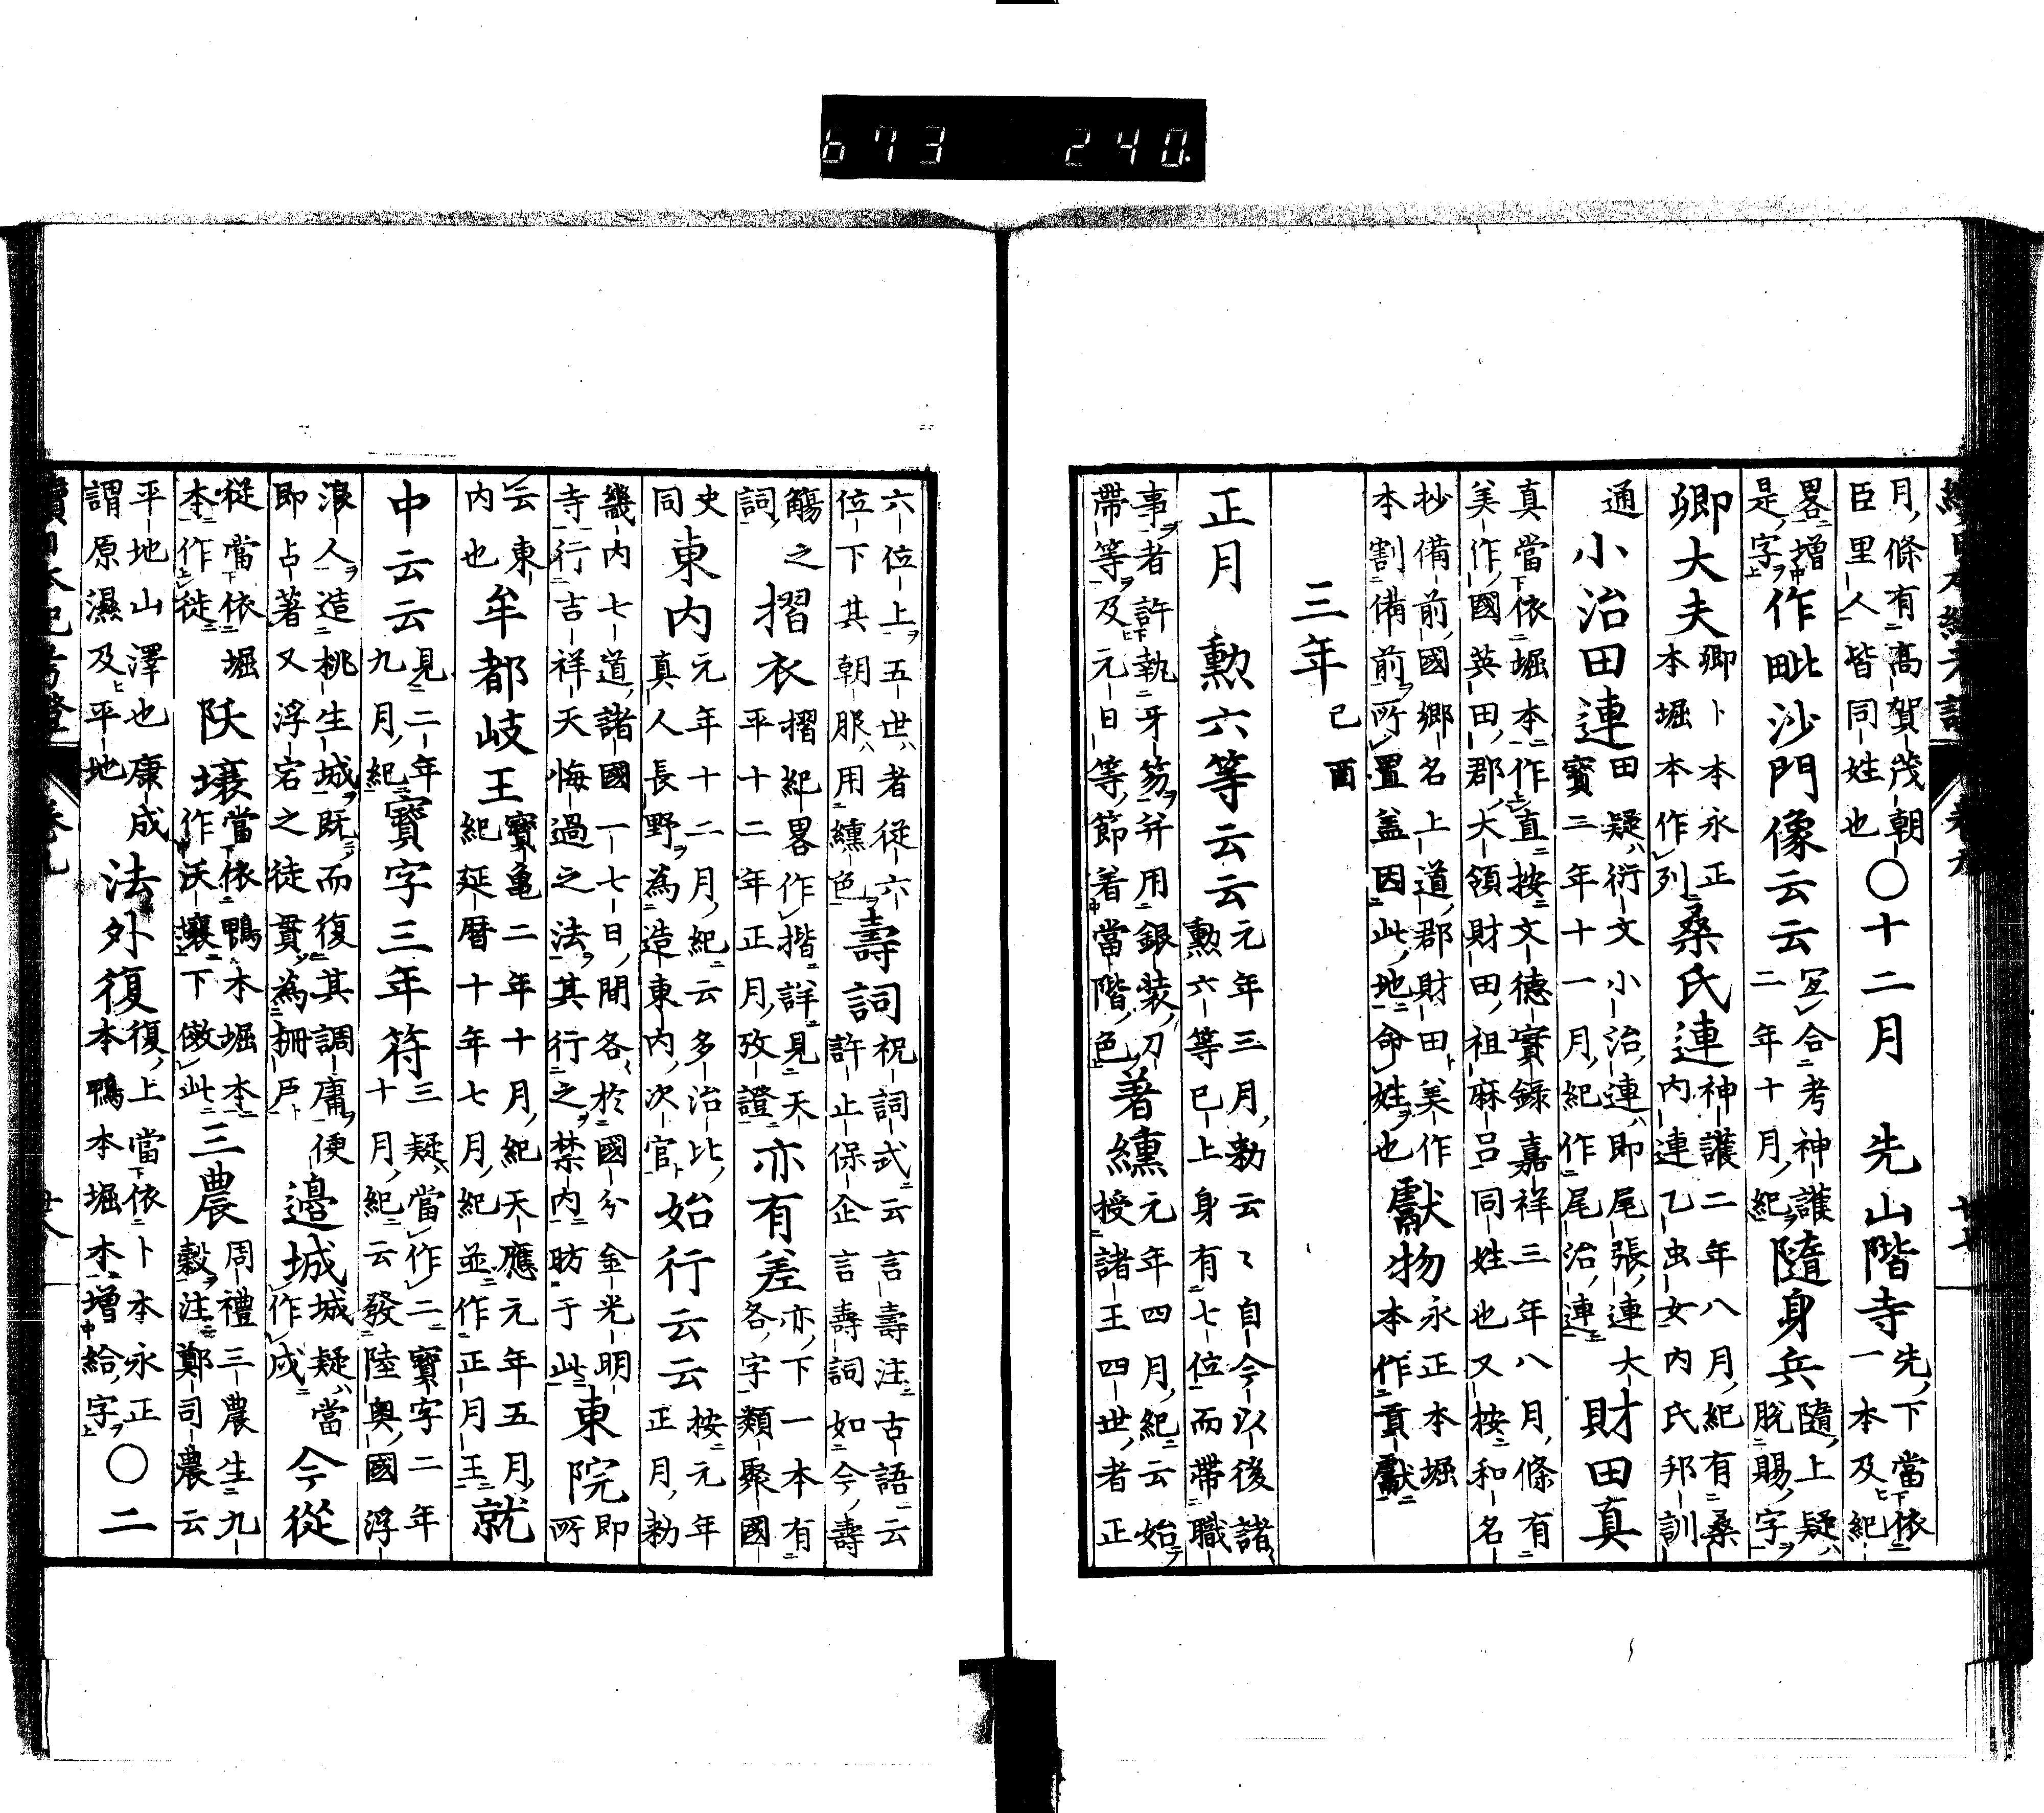 673 240.
月條有高賀茂朝
臣里人皆同姓也
○十二月 先山階寺
先下當依
一本及紀
畧増
是字
作毗沙門像云云
冝合考神護
二年十月紀
隨身兵
隨上疑
脫賜字
卿大夫
卿卜本永正
本堀本作列
桑氏連
神護二年八月紀有桑
内連乙虫女内氏邦訓
通
小治田連
田疑衍文小治連即尾張連大
寳二年十一月紀作尾治連
財田真
真當依堀本作直按文德實錄嘉祥三年八月條有
美作國英田郡大領財田祖麻呂同姓也又按和名
抄備前國鄉名上道郡財田美作
本割備前所置盖因此地命姓也
獻物
永正本堀
本作貢獻
三年
己酉
正月 勲六等云云
元年三月勅云〻自今以後諸
勲六等已上身有七位而帶職
事者許執牙笏并用銀装刀
帶等及元日等節着當階色
著纁
元年四月紀云始
授諸王四世者正
六位上五世者從六
位下其朝服用纁色
壽詞
祝詞式云言壽注古語云
許止保企言壽詞如今壽
觴之
詞
摺衣
摺紀畧作揩詳見天
平十二年正月攷證
亦有差
亦下一本有
各字類聚國
史
同
東内
元年十二月紀云多治比
真人長野為造東内次官
始行云云
按元年
正月勅
畿内七道諸國一七日間各於國分金光明
寺行吉祥天悔過之法其行之禁内昉于此
東院
即
所
云東
内也
牟都岐王
寳亀二年十月紀天應元年五月
紀延暦十年七月紀並作正月王
就
中云云
見二年
九月紀
寳字三年符
三疑當作二寳字二年
十月紀云發陸奥國浮
浪人造桃生城既而復其調庸便
即占著又浮宕之徒貫為柵戸
邉城
城疑當
作成
今從
従當依堀
本作徙
㚲壤
當依鴨本堀本
作沃壤下倣此
三農
周禮三農生九
穀注鄭司農云
平地山澤也康成
謂原濕及平地
法外復
復上當依卜本永正
本鴨本堀本増給字
○二